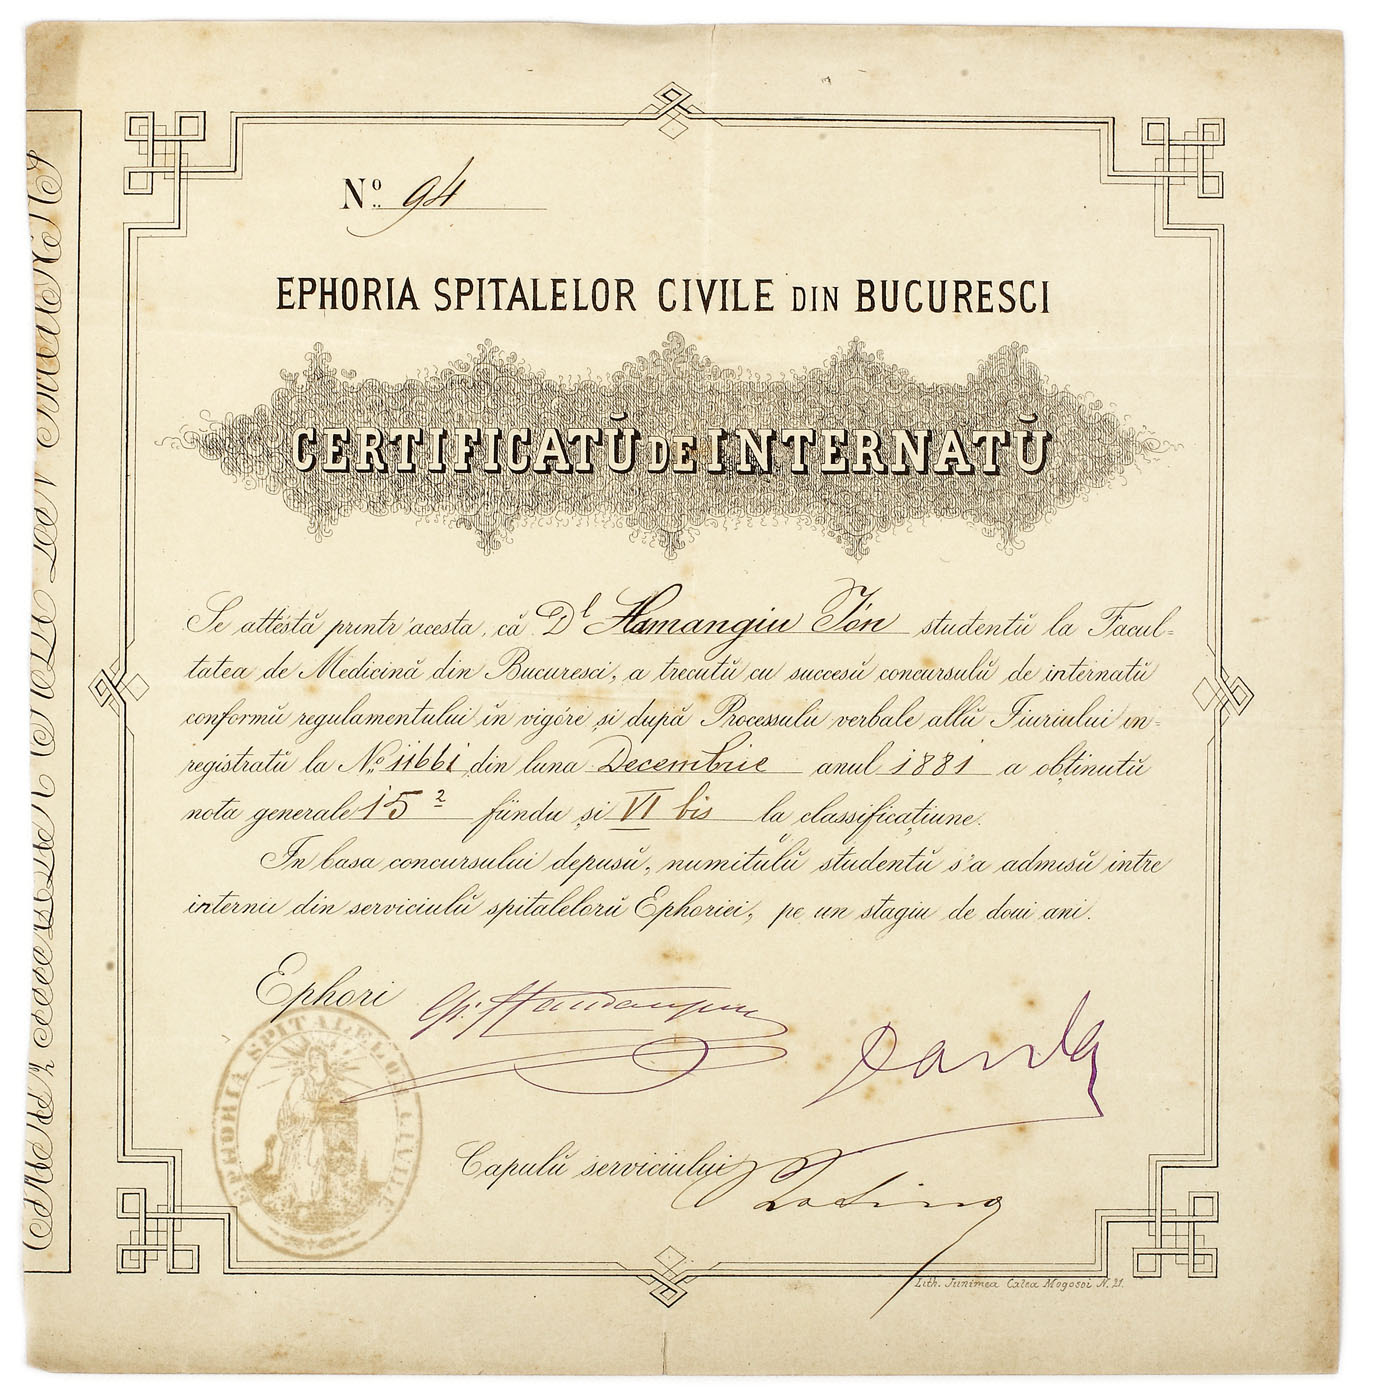 Nº 94
EPHORIA SPITALELOR CIVILE DIN BUCURESCI
CERTIFICATŬ DE INTERNATŬ
Se attéstă printr'acesta, că Dl Hamangiu Ión studentŭ la Facul-
tatea de Medicină din Bucuresci, a trecutŭ cu succesŭ concursulŭ de internatŭ
conformŭ regulamentului în vigóre și după Processulŭ verbale allŭ Jiuriului in-
registratŭ la Nº 11661 din luna Decembrie anul 1881 a obținutŭ
nota generale 15 2 fiindu și VI bis la classificațiune.
In basa concursului depusŭ, numitulŭ studentŭ s'a admisŭ intre
internii din serviciulŭ spitalelorŭ Ephoriei, pe un stagiu de doui ani.
Ephori
EPHORIA SPITALELOR CIVILE
Capulŭ serviciului
Lith. Junimea Calea Mogosoi N. 21.